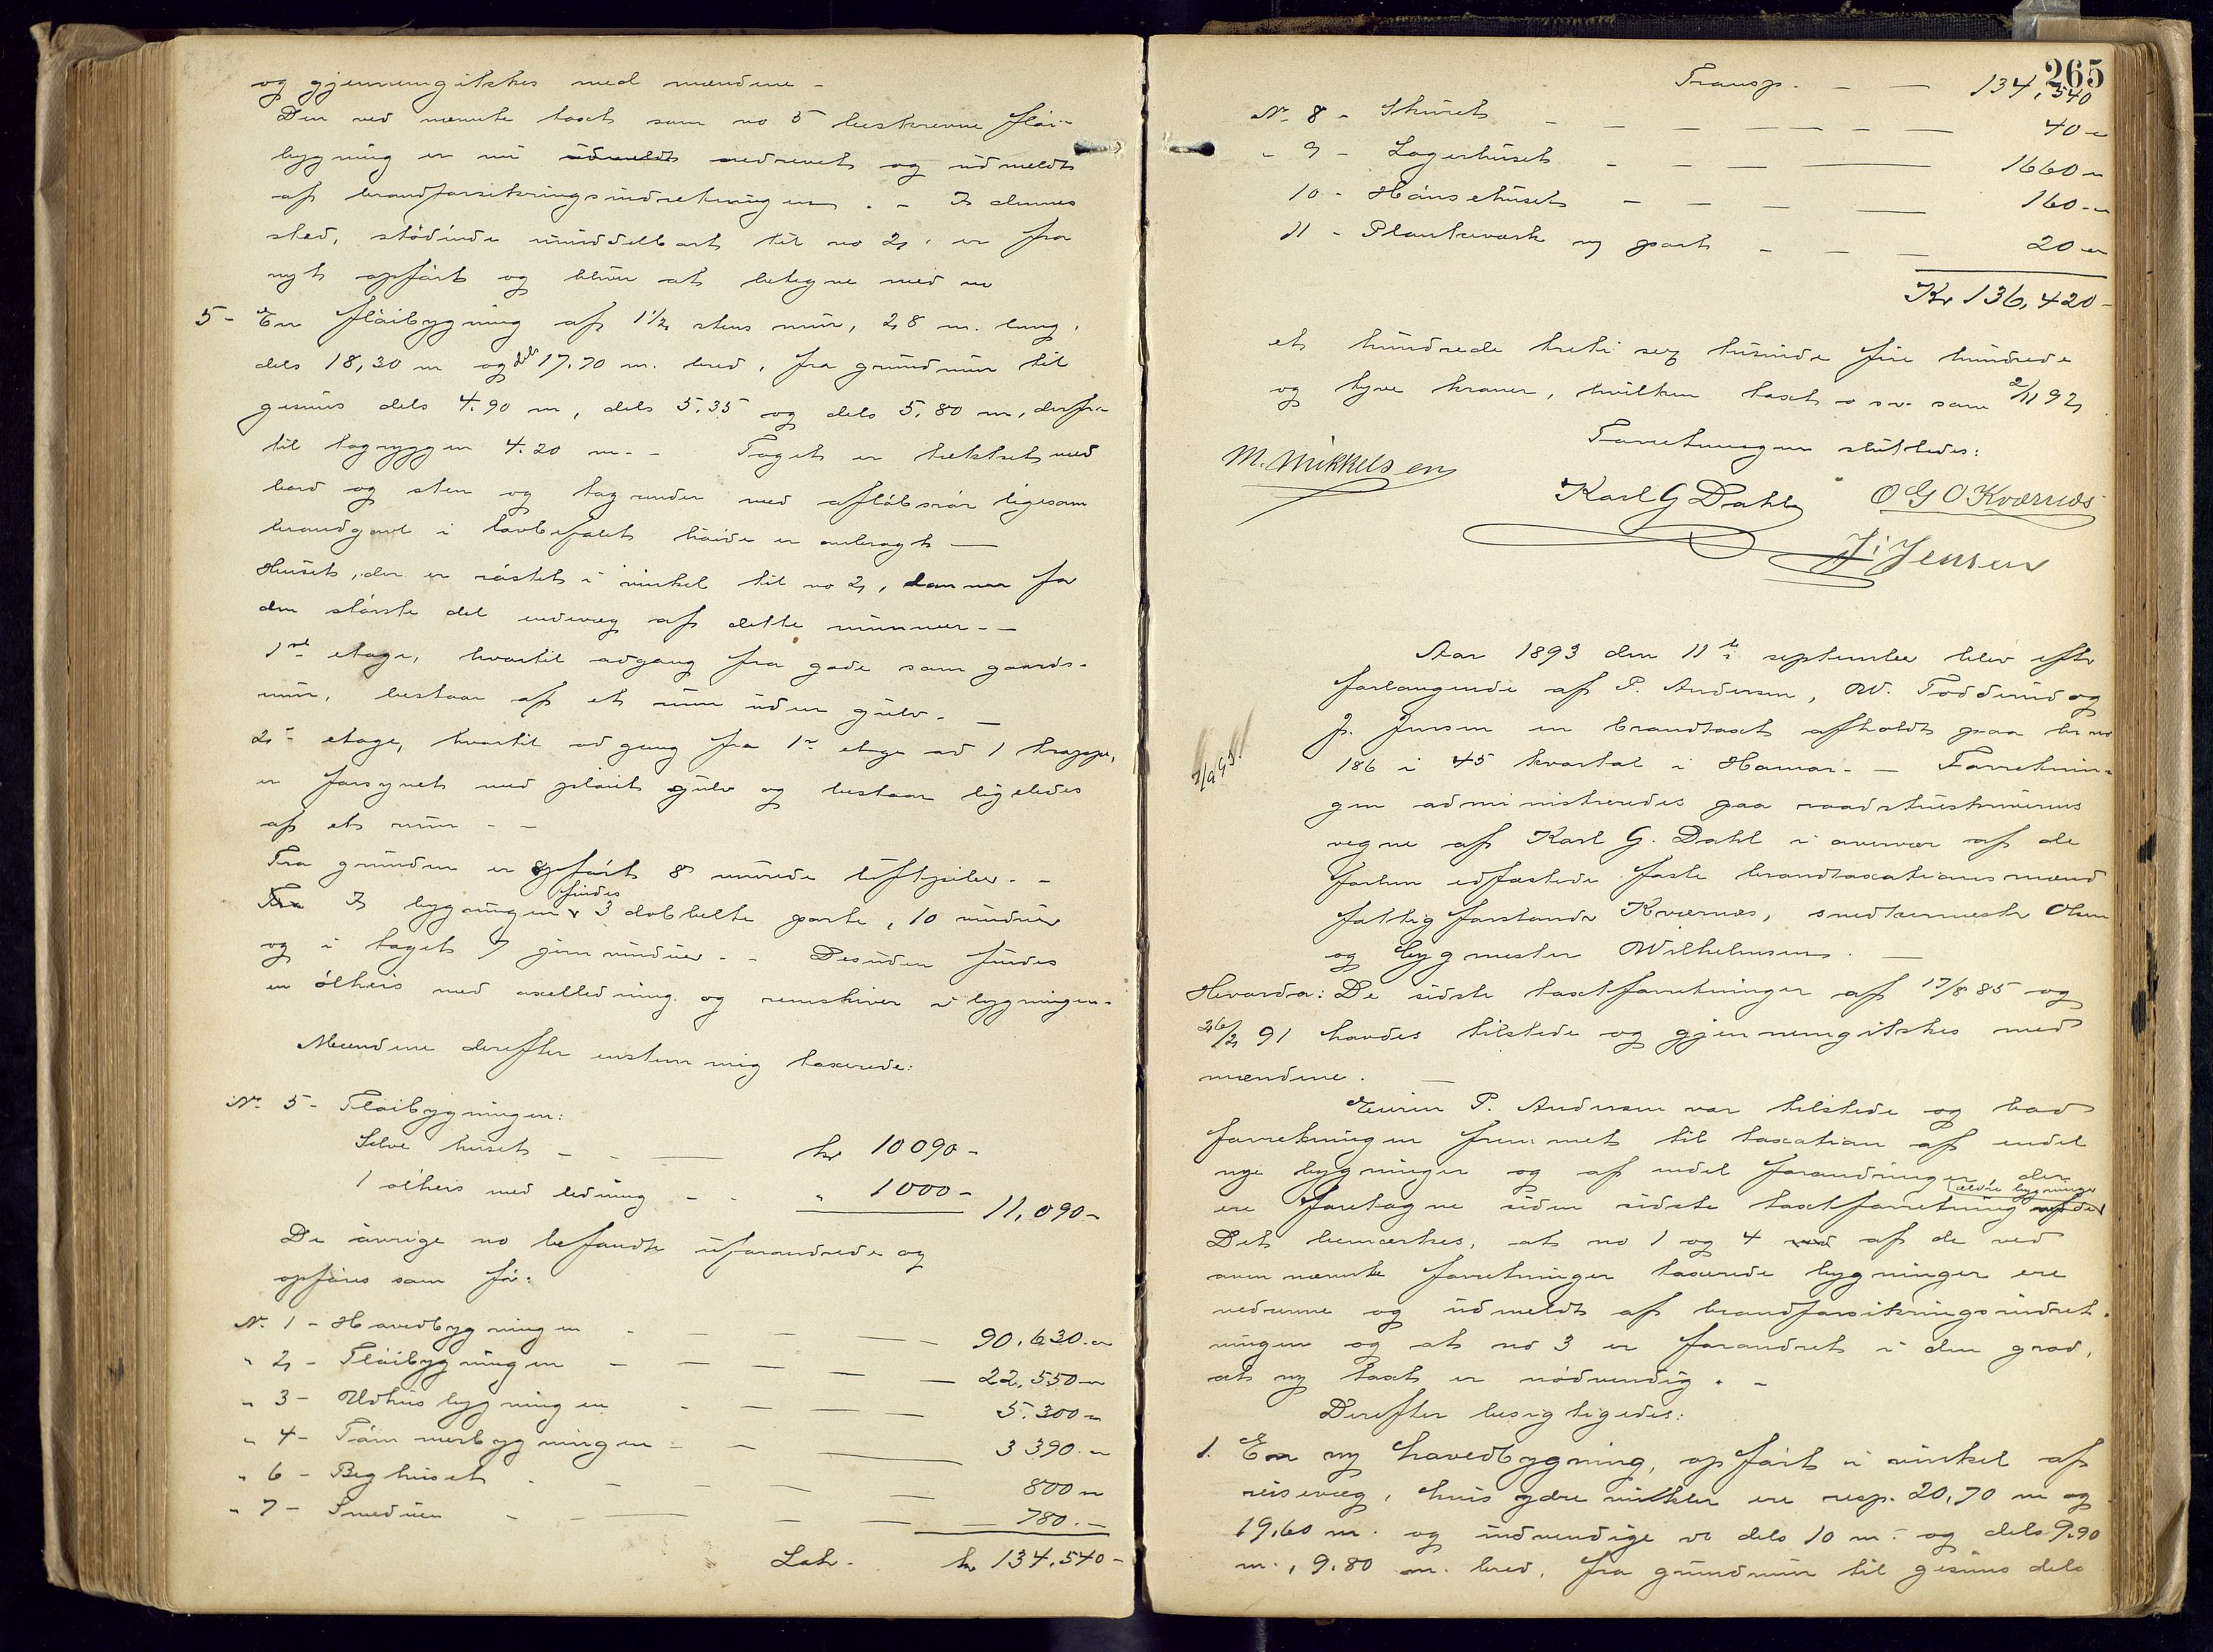 og gjennemgikkes med mændene -
Den ved nævnte taxt som no 5 beskrevne fløi-
bygning er nu udmeldt nedrevet og udmeldt
af brandforsikringsindretningen. - I dennes
sted, stødende umiddelbart til no 2, er fra
nyt opført og bliver at betegne med no
5 - En fløibygning af 1 1/2 stens mur, 28 m. lang,
dels 18,30 m og dels 17.70 m. bred, fra grundmur til
gesims dels 4.90 m, dels 5.35 og dels 5.80 m, derfra
til tagryggen 4.20 m. - Taget er tækket med
bord og sten og tagrender med afløbsrør ligesom
brandgavl i lovbefalet høide er anbragt —
Huset, der er reist i vinkel til no 2, danner for
den største del endevæg af dette nummer - -
1ste etage, hvortil adgang fra gade som gaards-
rum, bestaar af et rum uden gulv. —
2den etage, hvortil adgang fra 1ste etage ad 1 trappe,
er forsynet med pløiet gulv og bestaar ligeledes
af et rum - -
Fra grunden er opført 8 murede luftpiber. -
Fra I bygningen findes 3 dobbelte porte, 10 vinduer
og i taget 7 jernvinduer. - Desuden findes
en ølheis med axelledning og remskiver i bygningen.
Mændene derefter enstemmig taxerede:
No 5 - Fløibygningen:
Selve huset - - — kr 10090 -
1 ølheis med ledning - - " 1000 - 11,090 -
De øvrige no befandtes uforandrede og
opføres som før:
No 1 - Hovedbygningen - - - — 90,630. -
" 2 - Fløibygningen - - - — 22,550 -
" 3 - Udhusbygningen - - - — 5.300 -
" 4 - Tømmerbygningen - - — 3390. -
" 6 - Beghuset - - - - — 800 -
" 7 - Smedien - - — - — 780. -
Lat. kr 134,540 -
265
Transp. - — 134,540
No 8 - Skuret - - - - - - — 40 -
" 9 - Lagerhuset - - - — 1660 -
10 - Hønsehuset - - - — 160 -
11 - Plankeværk og port - - - 20 -
Kr 136,420 -
et hundrede treti sex tusinde fire hundrede
og tyve kroner, hvilken taxt o sv. som 2/11 92
Forretningen sluttedes:
M. Mikkelsen
Karl G Dahl O G O Kværnæs
J. Jensen
Aar 1893 den 11te september blev efter
forlangende af P. Andersen, W. Todderud og
J. Jensen en brandtaxt afholdt paa br no
186 i 45 kvartal i Hamar. - Forretnin-
gen administreredes paa raadstueskriverens
vegne af Karl G. Dahl i overvær af de
forhen edfæstede faste brandtaxationsmænd
fattigforstander Kværnæs, snedkermester Olsen
og bygmester Wilhelmsen. —
Hvorda: De sidste taxtforretninger af 17/8 85 og
26/2 91 havdes tilstede og gjennemgikkes med
mændene. —
Eieren P. Andersen var tilstede og bad
forretningen fremmet til taxation af endel
nye bygninger og af endel forandringer, der
ere foretagne siden sidste taxtforretning af de ældre bygninger
Det bemærkes, at no 1 og 4 ved af de ved
oven nævnte forretninger taxerede bygninger ere
nedrevne og udmeldt af brandforsikringsindret-
ningen og at no 3 er forandret i den grad,
at ny taxt er nødvendig. -
Derefter besigtigedes:
1. En ny hovedbygning, opført i vinkel af
reisevæg, hvis ydre vinkler ere resp. 20,70 m og
19,60 m. og indvendige do dels 10 m. og dels 9.90
m., 9.80 m. bred, fra grundmur til gesims dels